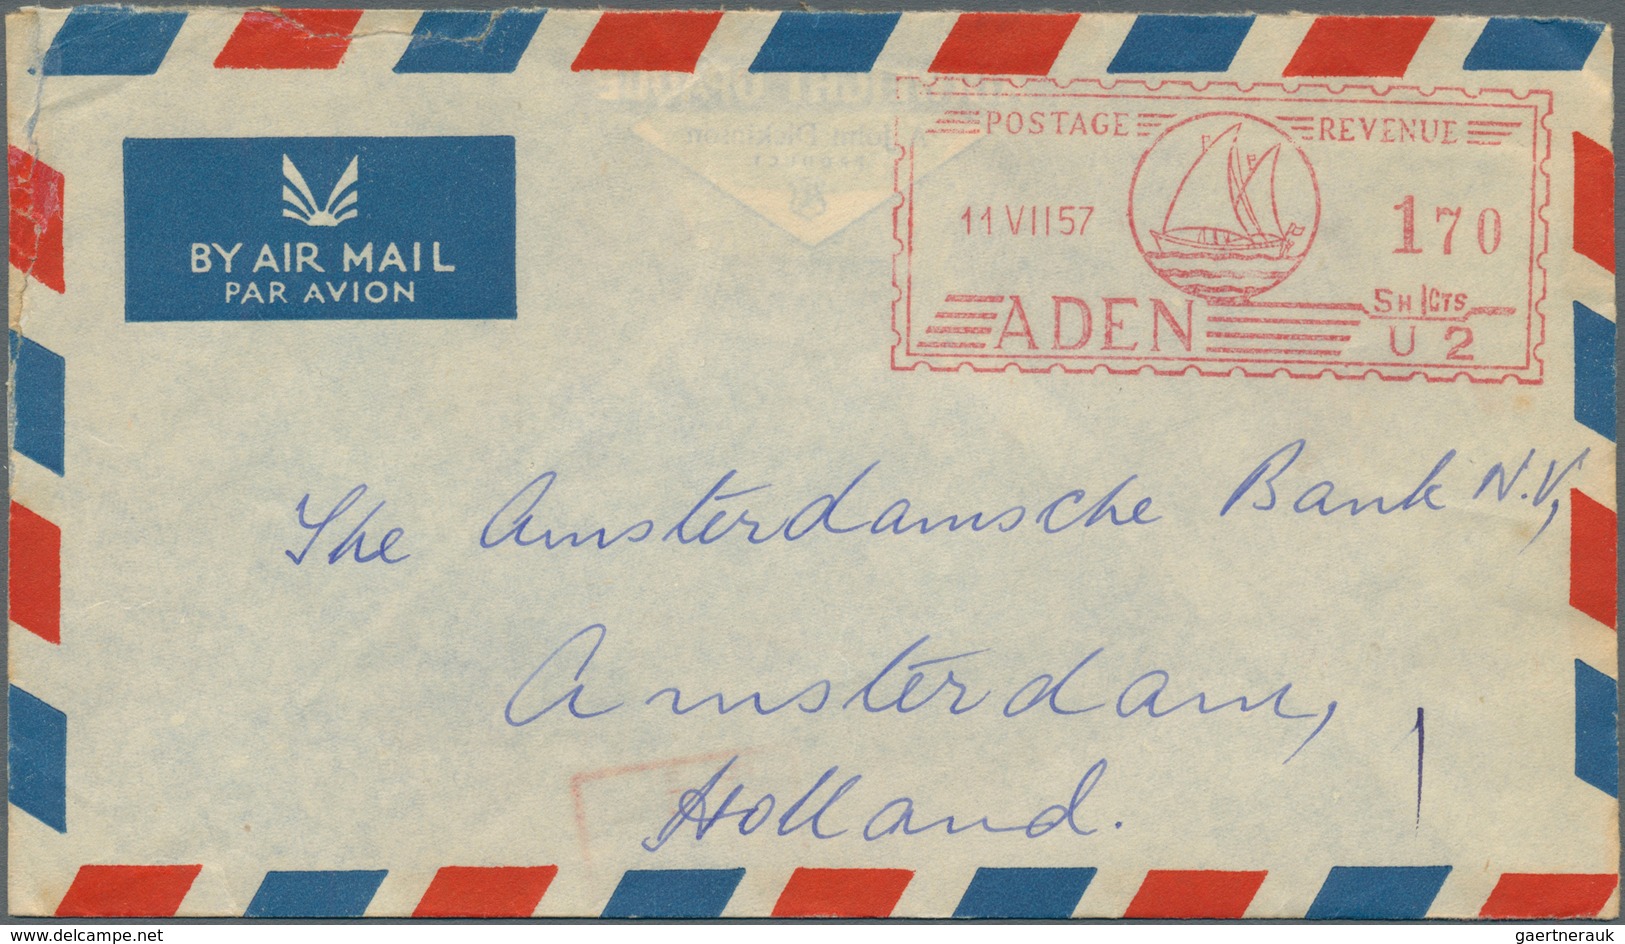 POSTAGE REVENUE
11 VII 57
170
SH CTS
ADEN
U 2
BY AIR MAIL
PAR AVION
John Dickinson
PRODUCT
The Amsterdamsche Bank N.V,
Amsterdam,
Holland.
www.delcampe.net
gaertnerauk